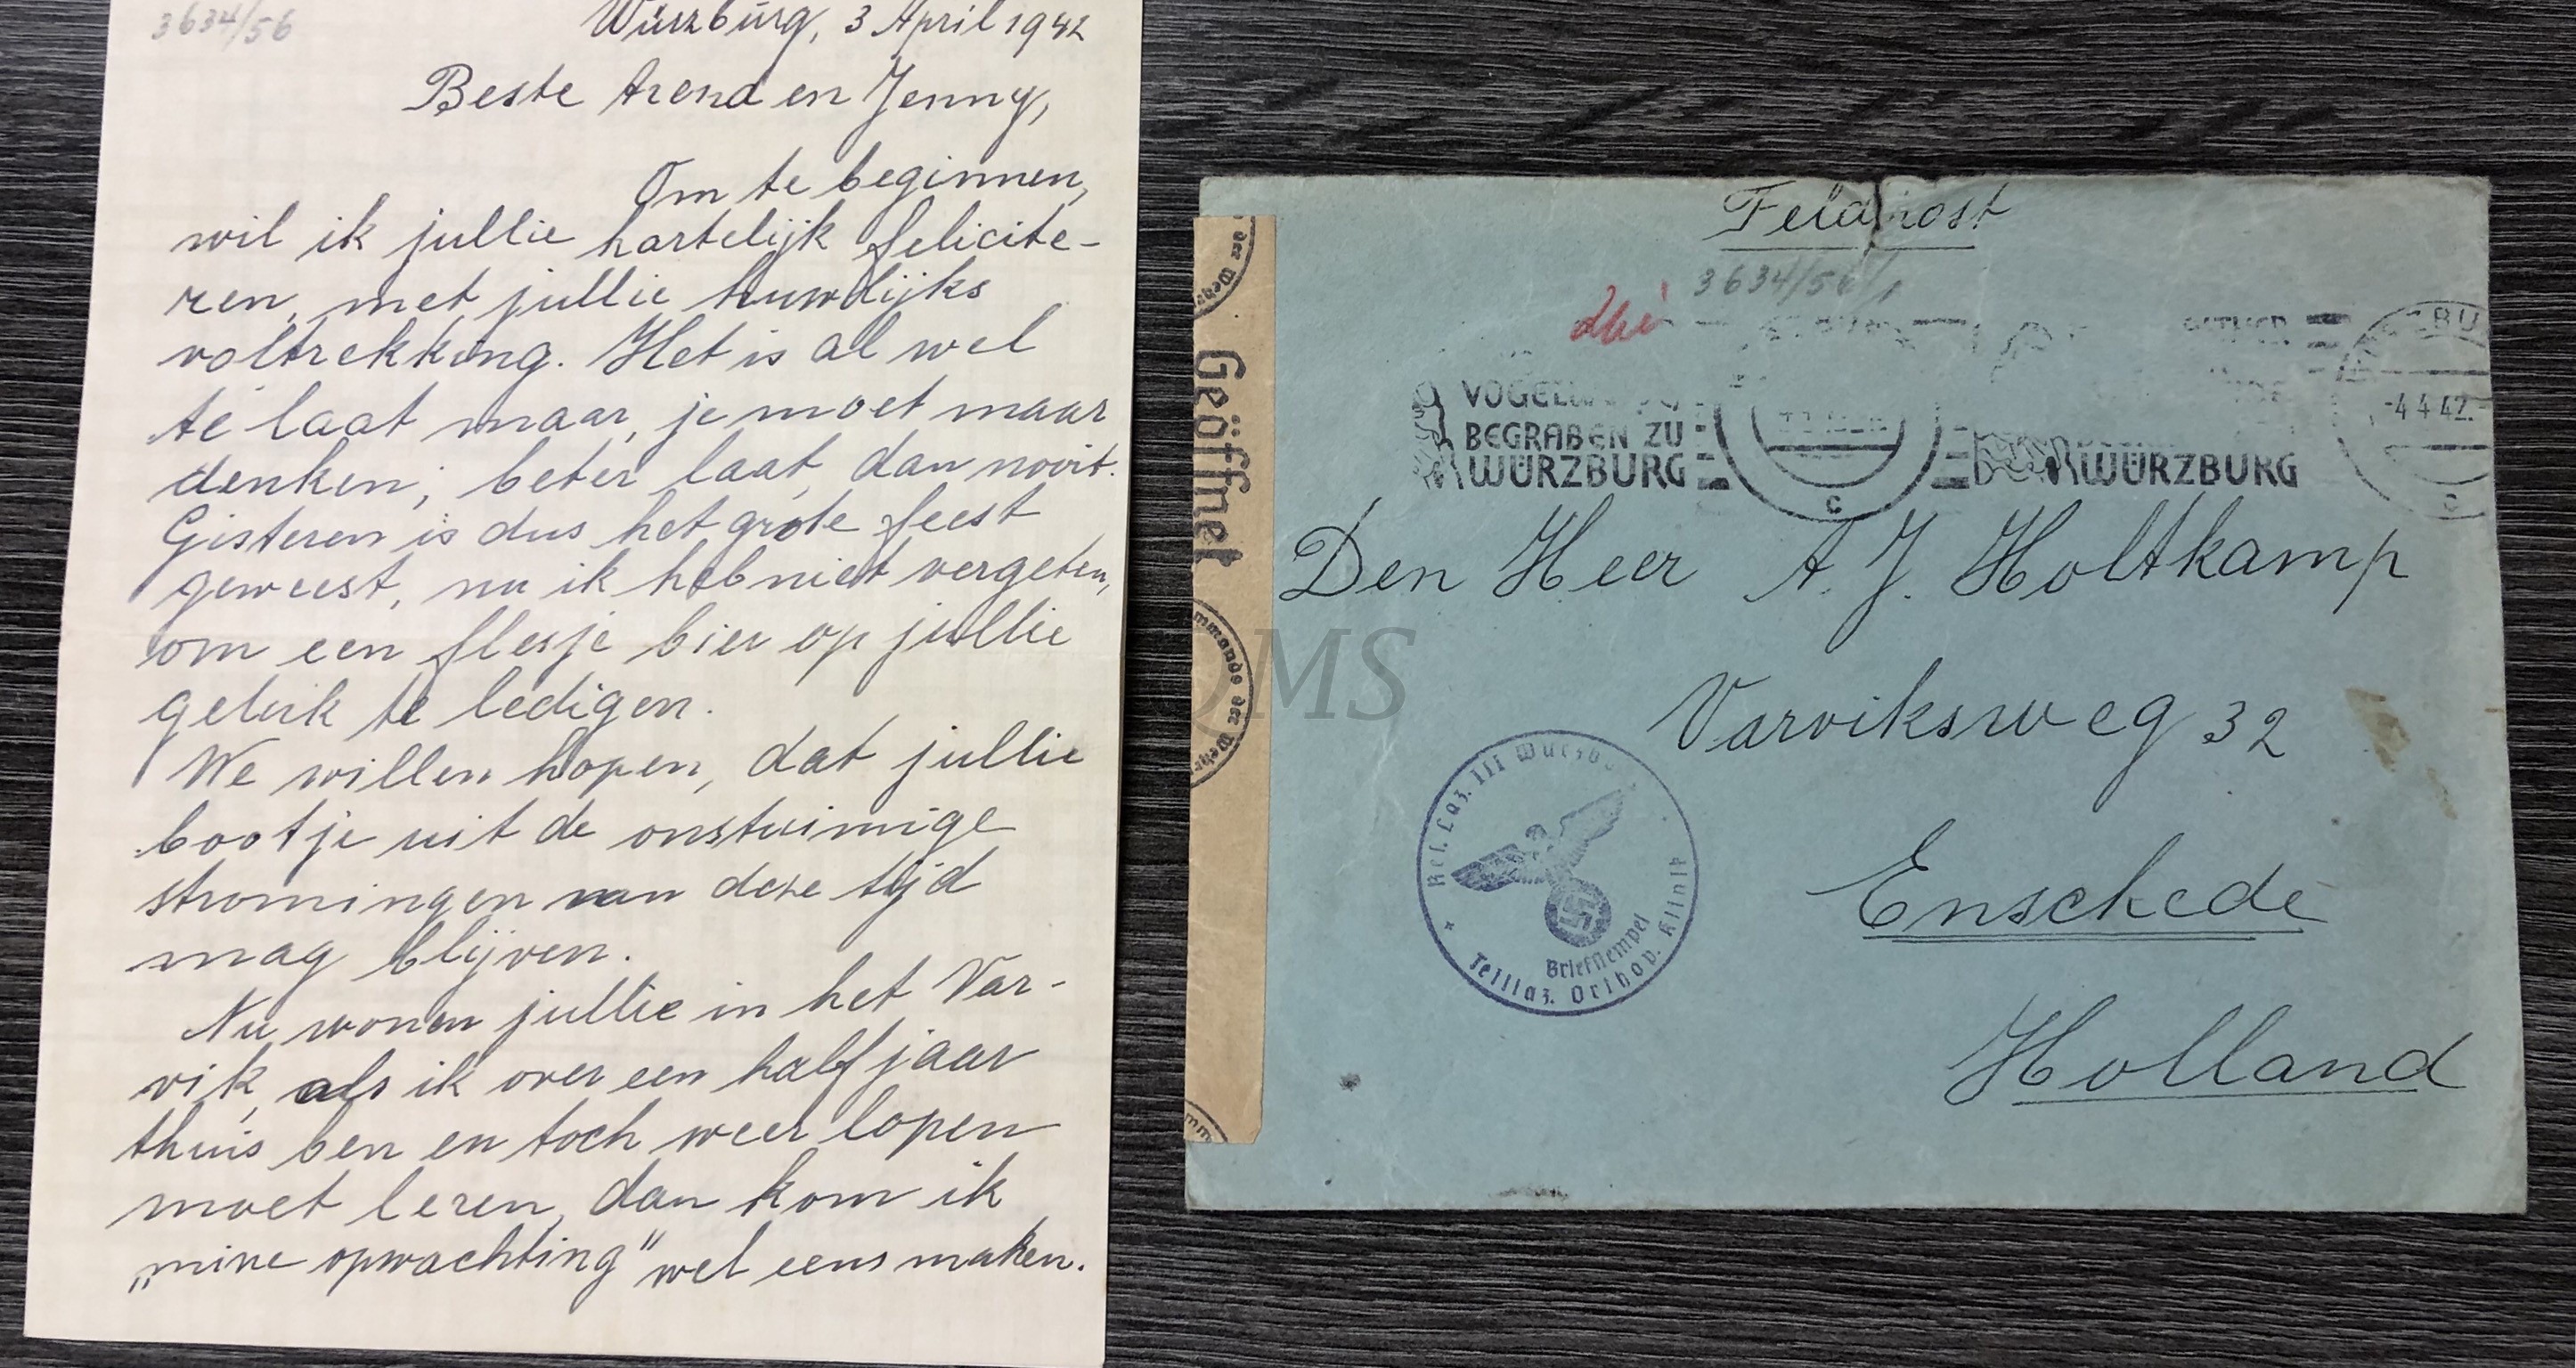 3634/56
Würzburg, 3 April 1942
Beste Arend en Jenny,
Om te beginnen,
wil ik jullie hartelijk felicite-
ren, met jullie huwlijks
voltrekking. Het is al wel
te laat maar, je moet maar
denken, beter laat, dan nooit.
Gisteren is dus het grote feest
geweest, nu ik heb niet vergeten,
om een flesje bier op jullie
geluk te ledigen.
We willen hopen, dat jullie
bootje uit de onstuimige
stromingen van deze tijd
mag blijven.
Nu wonen jullie in het Var-
vik, als ik over een half jaar
thuis ben en toch weer lopen
moet leren, dan kom ik
„mine opwachting" wel eens maken.
Feldpost
3634/56/1
BEGRABEN ZU
WÜRZBURG
c
WÜRZBURG
-4.4.42.
c
Geöffnet
mmando der Wehr
Den Heer A. J. Holtkamp
Varviksweg 32
Enschede
Holland
Res. Laz. III
Teillaz. Orthop. Klinik
Briefstempel
QMS